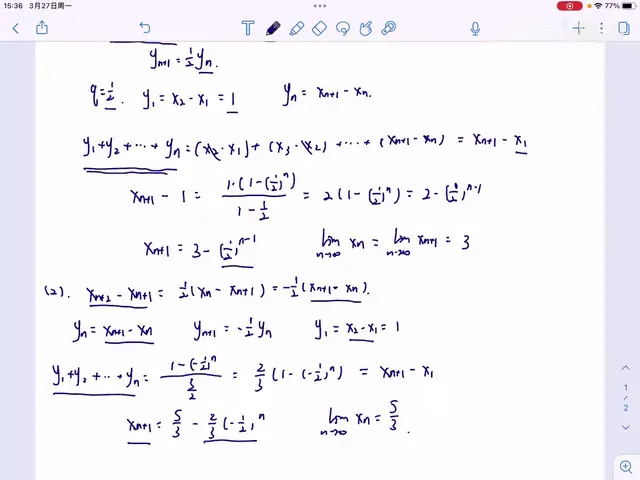 15:36 3月27日周一
77%
y_{n+1} = \frac{1}{2} y_n.
q = \frac{1}{2}. y_1 = x_2 - x_1 = 1 y_n = x_{n+1} - x_n.
y_1 + y_2 + ⋯ + y_n = (x_2 - x_1) + (x_3 - x_2) + ⋯ + (x_{n+1} - x_n) = x_{n+1} - x_1
x_{n+1} - 1 = \frac{1·(1-(\frac{1}{2})^n)}{1-\frac{1}{2}} = 2(1-(\frac{1}{2})^n) = 2-(\frac{1}{2})^{n-1}
x_{n+1} = 3-(\frac{1}{2})^{n-1} \lim_{n→∞} x_n = \lim_{n→∞} x_{n+1} = 3
(2). x_{n+2} - x_{n+1} = \frac{1}{2}(x_n - x_{n+1}) = -\frac{1}{2}(x_{n+1} - x_n).
y_n = x_{n+1} - x_n y_{n+1} = -\frac{1}{2} y_n y_1 = x_2 - x_1 = 1
y_1 + y_2 + ⋯ + y_n = \frac{1-(-\frac{1}{2})^n}{\frac{3}{2}} = \frac{2}{3}(1-(-\frac{1}{2})^n) = x_{n+1} - x_1
x_{n+1} = \frac{5}{3} - \frac{2}{3}(-\frac{1}{2})^n \lim_{n→∞} x_n = \frac{5}{3}.
1
/
2